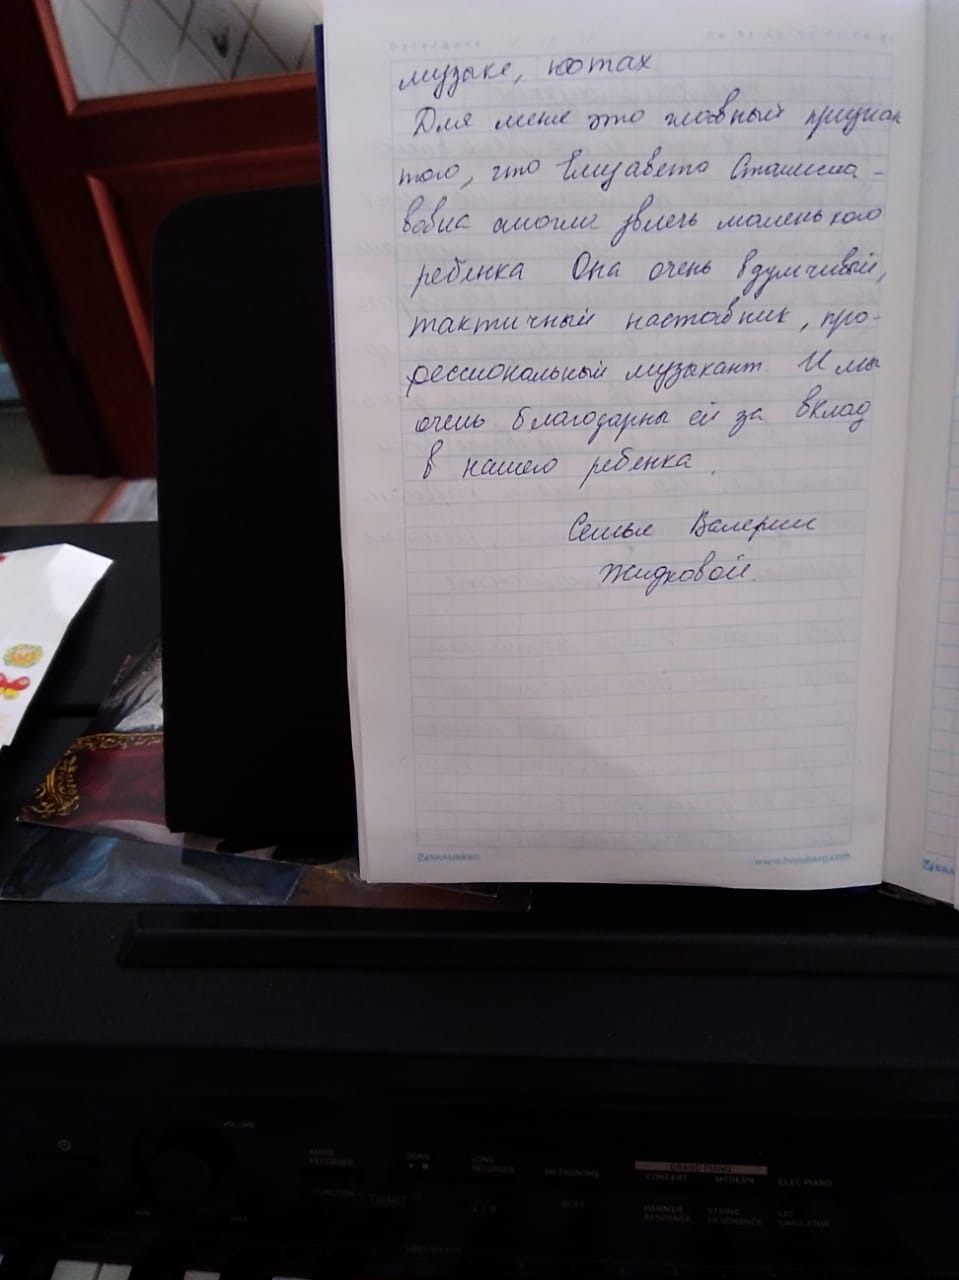 музыке, нотах
Для меня это главный признак
того, что Елизавета Станисла-
вовна смогла увлечь маленького
ребенка Она очень вдумчивый,
тактичный наставник, про-
фессиональный музыкант И мы
очень благодарны ей за вклад
в нашего ребенка.
Семья Валерии
Жидковой.
BRAUBERG
www.brauberg.com
VOLUME
MIN
MAX
AUDIO
RECORDER
SONG
SONG
RECORDER
METRONOME
GRAND PIANO
CONCERT
MODERN
ELEC PIANO
FUNCTION
DUET
HAMMER
RESPONSE
STRING
RESONANCE
LID
SIMULATOR